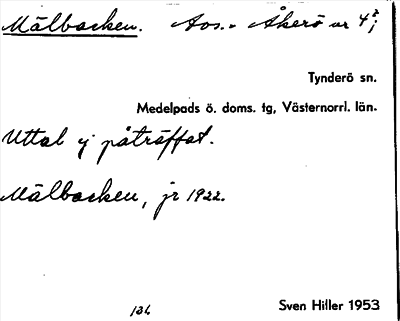 Mälbacken. Avs.- Åkerö nr 4²;
Tynderö sn.
Medelpads ö. doms. tg, Västernorrl. län.
Uttal ej påträffat.
Mälbacken, jr 1922.
134
Sven Hiller 1953